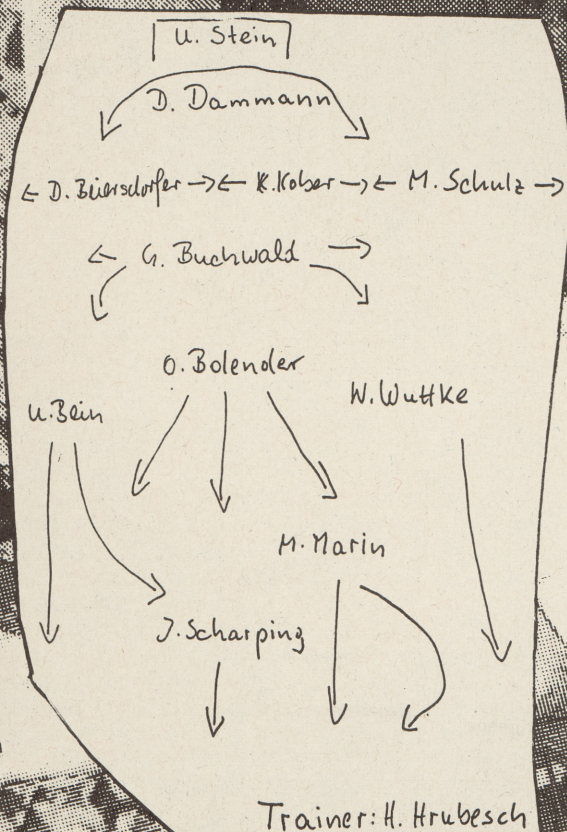 U. Stein
D. Dammann
D. Beiersdorfer K. Kober M. Schulz
G. Buchwald
O. Bolender
U. Bein W. Wuttke
M. Marin
J. Scharping
Trainer: H. Hrubesch